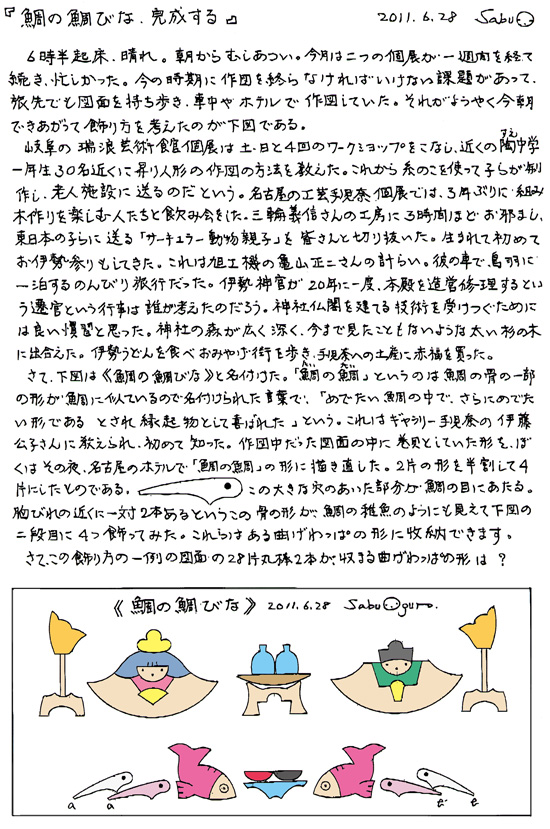 『鯛の鯛びな.完成する』 2011.6.28 Sabu
6時半起床.晴れ。朝からむしあつい。今月は二つの個展が一週間を経て
続き、忙しかった。今の時期に作図を終らなければいけない課題があって、
旅先でも図面を持ち歩き、車中やホテルで作図していた。それがようやく今朝
できあがって飾り方を考えたのが下図である。
岐阜の瑞浪芸術館個展は土・日と4回のワークショップをこなし、近くの陶(すえ)中学
一年生30名近くに昇り人形の作図の方法を教えた。これから糸のこを使って子らが制
作し、老人施設に送るのだという。名古屋の工芸手児奈個展では、3年ぶりに組み
木作りを楽しむ人たちと飲み会をした。三輪義信さんの工房に3時間ほどお邪まし、
東日本の子らに送る「サーキュラー動物親子」を皆さんと切り抜いた。生まれて初めて
お伊勢参りもしてきた。これは旭工機の亀山正二さんの計らい。彼の車で鳥羽に
一泊するのんびり旅行だった。伊勢神宮が20年に一度、本殿を造営修理するとい
う遷宮という行事は誰が考えたのだろう。神社仏閣を建てる技術を受けつぐために
は良い慣習と思った。神社の森が広く深く、今まで見たこともないような太い杉の木
に出会えた。伊勢うどんを食べおみやげ街を歩き、手児奈への土産に赤福を買った。
さて、下図は《鯛の鯛びな》と名付けた。「鯛(たい)の鯛(たい)」というのは魚周の骨の一部
の形が鯛に似ているので名付けられた言葉で、「めでたい鯛の中で、さらにめでた
い形である とされ縁起物として喜ばれた」という。これはギャラリー手児奈の伊藤
公子さんに教えられ、初めて知った。作図中だった図面の中に巻貝としていた形を、ぼ
くはその夜、名古屋のホテルで「鯛の鯛」の形に描き直した。2片の形を半割して4
片にしたものである。この大きな穴のあいた部分が鯛の目にあたる。
胸びれの近くに一対2本あるというこの骨の形が、鯛の稚魚のようにも見えて下図の
二段目に4つ飾ってみた。これらはある曲げわっぱの形に収納できます。
さて、この飾り方の一例の図面の28片丸棒2本が、収まる曲げわっぱの形は?
《鯛の鯛びな》 2011.6.28 Sabu Oguro.
a a e' e